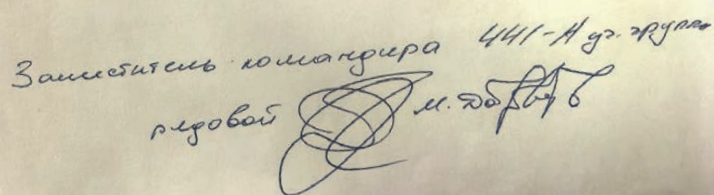 Заместитель командира 441-А уч. группы
рядовой М.